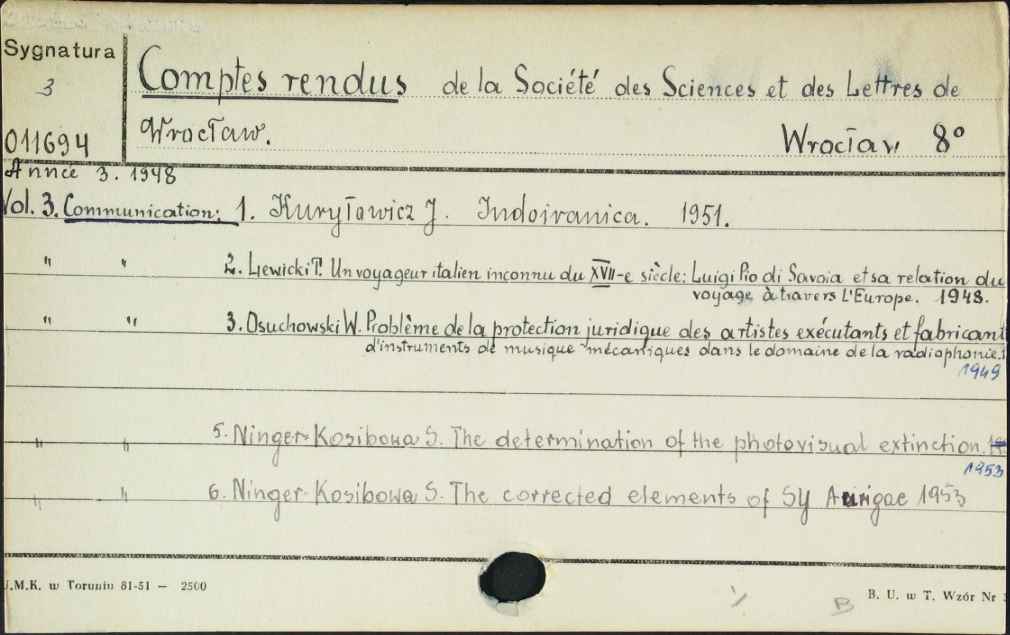 Sygnatura
3
011694
Comptes rendus de la Société des Sciences et des Lettres de
Wrocław. Wrocław 8°
Année 3. 1948
Vol. 3. Communication: 1. Kuryłowicz J. Indoiranica. 1951.
" " 2. Lewicki T. Un voyageur italien inconnu du XVII-e siècle: Luigi Pio di Savoia et sa relation du
voyage à travers L'Europe. 1948.
" " 3. Osuchowski W. Problème de la protection juridique des artistes exécutants et fabricant
d'instruments de musique mécaniques dans le domaine de la radiophonie.
1949
" " 5. Ninger-Kosibowa S. The determination of the photovisual extinction.
1953
" " 6. Ninger-Kosibowa S. The corrected elements of SY Aurigae 1953
U.M.K. w Toruniu 81-51 — 2500
B
B. U. w T. Wzór Nr